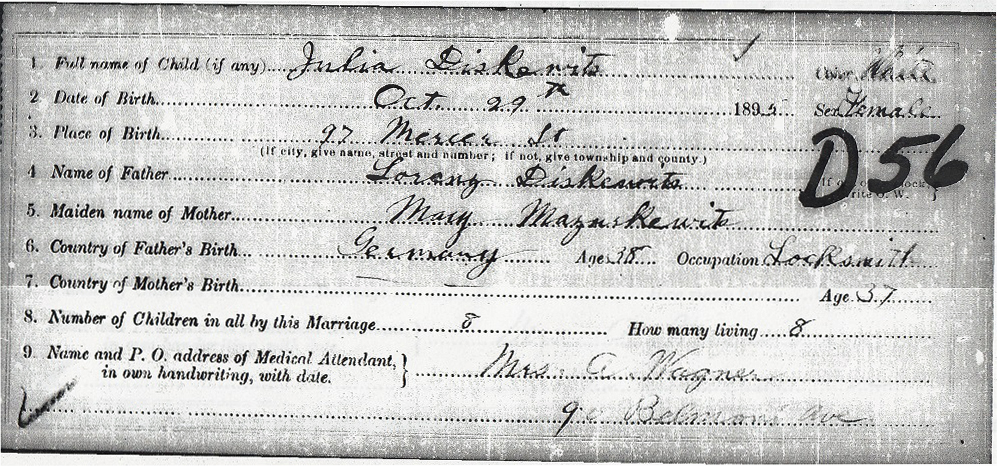 1. Full name of Child (if any) Julia Diskewits Color White
2. Date of Birth. Oct. 29th 1895 Sex Female
3. Place of Birth. 97 Mercer St
(If city, give name, street and number; if not, give township and county.)
D56
4 Name of Father Lorany Diskewits
5. Maiden name of Mother. Mary Mazuskewits
6. Country of Father's Birth. Germany Age 38 Occupation Locksmith
7. Country of Mother's Birth. — — Age 37
8. Number of Children in all by this Marriage. 8 How many living 8
9. Name and P. O. address of Medical Attendant, Mrs. A Wagner
in own handwriting, with date.
90 Belmont Ave